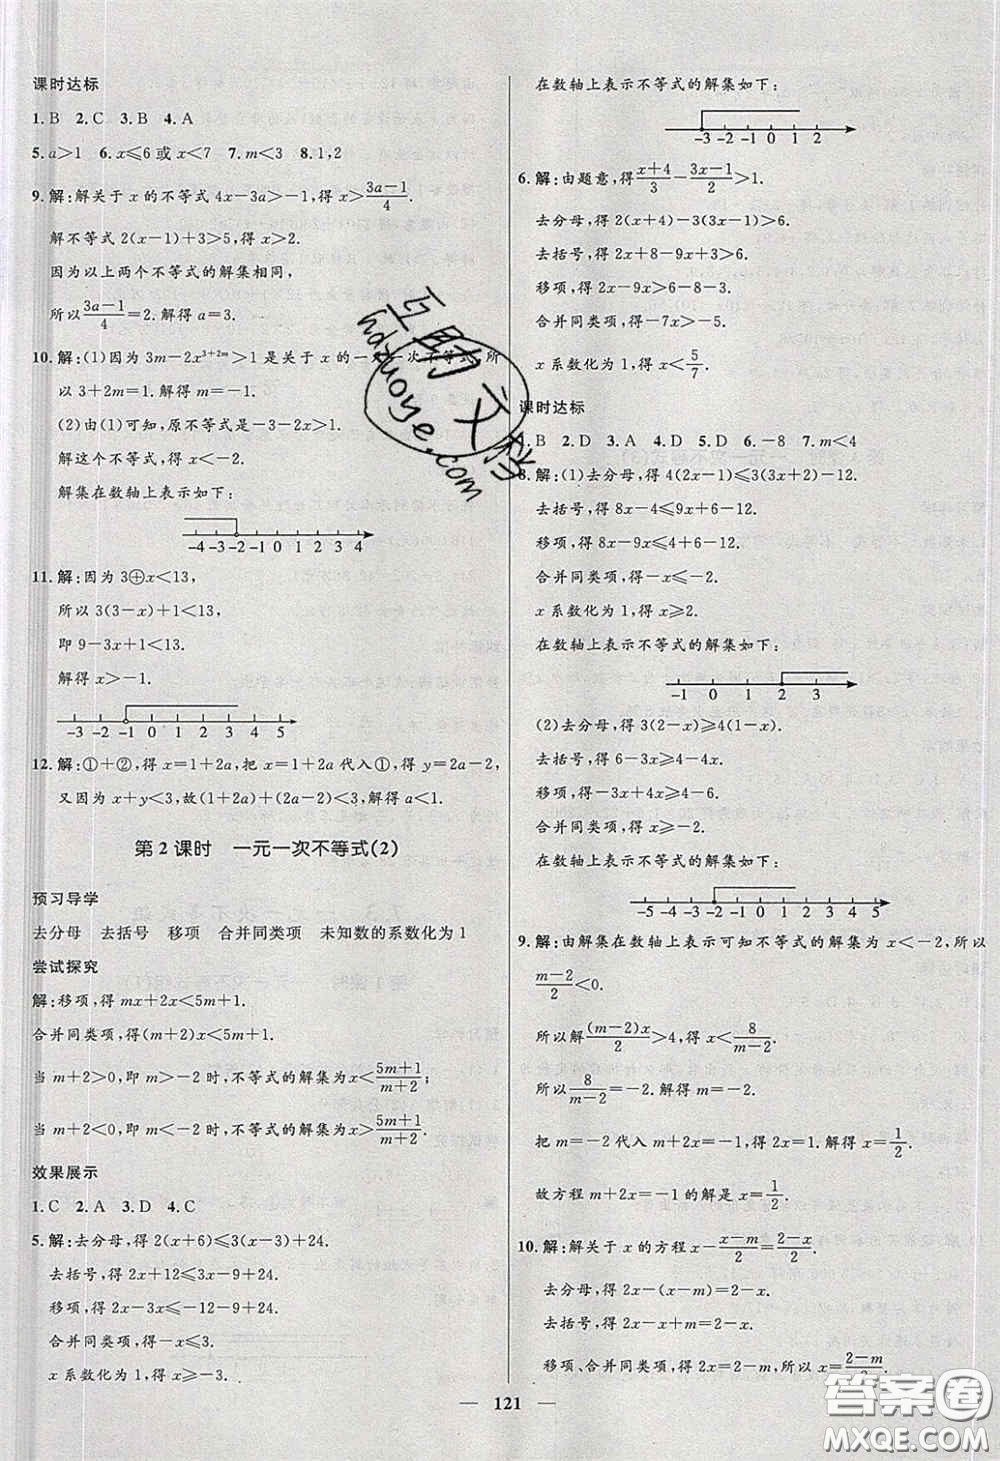 课时达标
1. B 2. C 3. B 4. A
5. a>1 6. x≤6 或 x<7 7. m<3 8. 1,2
9. 解:解关于 x 的不等式 4x-3a>-1,得 x>(3a-1)/4.
解不等式 2(x-1)+3>5,得 x>2.
因为以上两个不等式的解集相同,
所以(3a-1)/4=2. 解得 a=3.
10. 解:(1)因为 3m-2x^(3+2m)>1 是关于 x 的一次不等式,所
以 3+2m=1. 解得 m=-1.
(2)由(1)可知,原不等式为-3-2x>1.
解这个不等式,得 x<-2.
解集在数轴上表示如下:
-4 -3 -2 -1 0 1 2 3 4
11. 解:因为 3⊕x<13,
所以 3(3-x)+1<13,
即 9-3x+1<13.
解得 x>-1.
-4 -3 -2 -1 0 1 2 3 4 5
12. 解:①+②,得 x=1+2a,把 x=1+2a 代入①,得 y=2a-2,
又因为 x+y<3,故(1+2a)+(2a-2)<3,解得 a<1.
第 2 课时 一元一次不等式(2)
预习导学
去分母 去括号 移项 合并同类项 未知数的系数化为 1
尝试探究
解:移项,得 mx+2x<5m+1.
合并同类项,得(m+2)x<5m+1.
当 m+2>0,即 m>-2 时,不等式的解集为 x<(5m+1)/(m+2);
当 m+2<0,即 m<-2 时,不等式的解集为 x>(5m+1)/(m+2).
效果展示
1. C 2. A 3. D 4. C
5. 解:去分母,得 2(x+6)≤3(x-3)+24.
去括号,得 2x+12≤3x-9+24.
移项,得 2x-3x≤-12-9+24.
合并同类项,得-x≤3.
x 系数化为 1,得 x≥-3.
在数轴上表示不等式的解集如下:
-3 -2 -1 0 1 2
6. 解:由题意,得(x+4)/3-(3x-1)/2>1.
去分母,得 2(x+4)-3(3x-1)>6.
去括号,得 2x+8-9x+3>6.
移项,得 2x-9x>6-8-3.
合并同类项,得-7x>-5.
x 系数化为 1,得 x<5/7.
课时达标
1. B 2. D 3. A 4. D 5. D 6. -8 7. m<4
8. 解:(1)去分母,得 4(2x-1)≤3(3x+2)-12.
去括号,得 8x-4≤9x+6-12.
移项,得 8x-9x≤4+6-12.
合并同类项,得-x≤-2.
x 系数化为 1,得 x≥2.
在数轴上表示不等式的解集如下:
-1 0 1 2 3
(2)去分母,得 3(2-x)≥4(1-x).
去括号,得 6-3x≥4-4x.
移项,得-3x+4x≥4-6.
合并同类项,得 x≥-2.
在数轴上表示不等式的解集如下:
-5 -4 -3 -2 -1 0 1 2 3 4 5
9. 解:由解集在数轴上表示可知不等式的解集为 x<-2,所以
(m-2)/2<0.
所以解(m-2)x/2>4,得 x<8/(m-2).
所以8/(m-2)=-2. 解得 m=-2.
把 m=-2 代入 mx+2=1,得 2x=1. 解得 x=1/2.
故方程 m+2x=-1 的解是 x=1/2.
10. 解:解关于 x 的方程 x-(x-m)/2=(2-x)/2.
去分母,得 2x-(x-m)=2-x.
去括号,得 2x-x+m=2-x.
移项、合并同类项,得 2x=2-m,所以 x=(2-m)/2.
121
互助文档
hdzuoye.com
答案圈
MXQE.COM